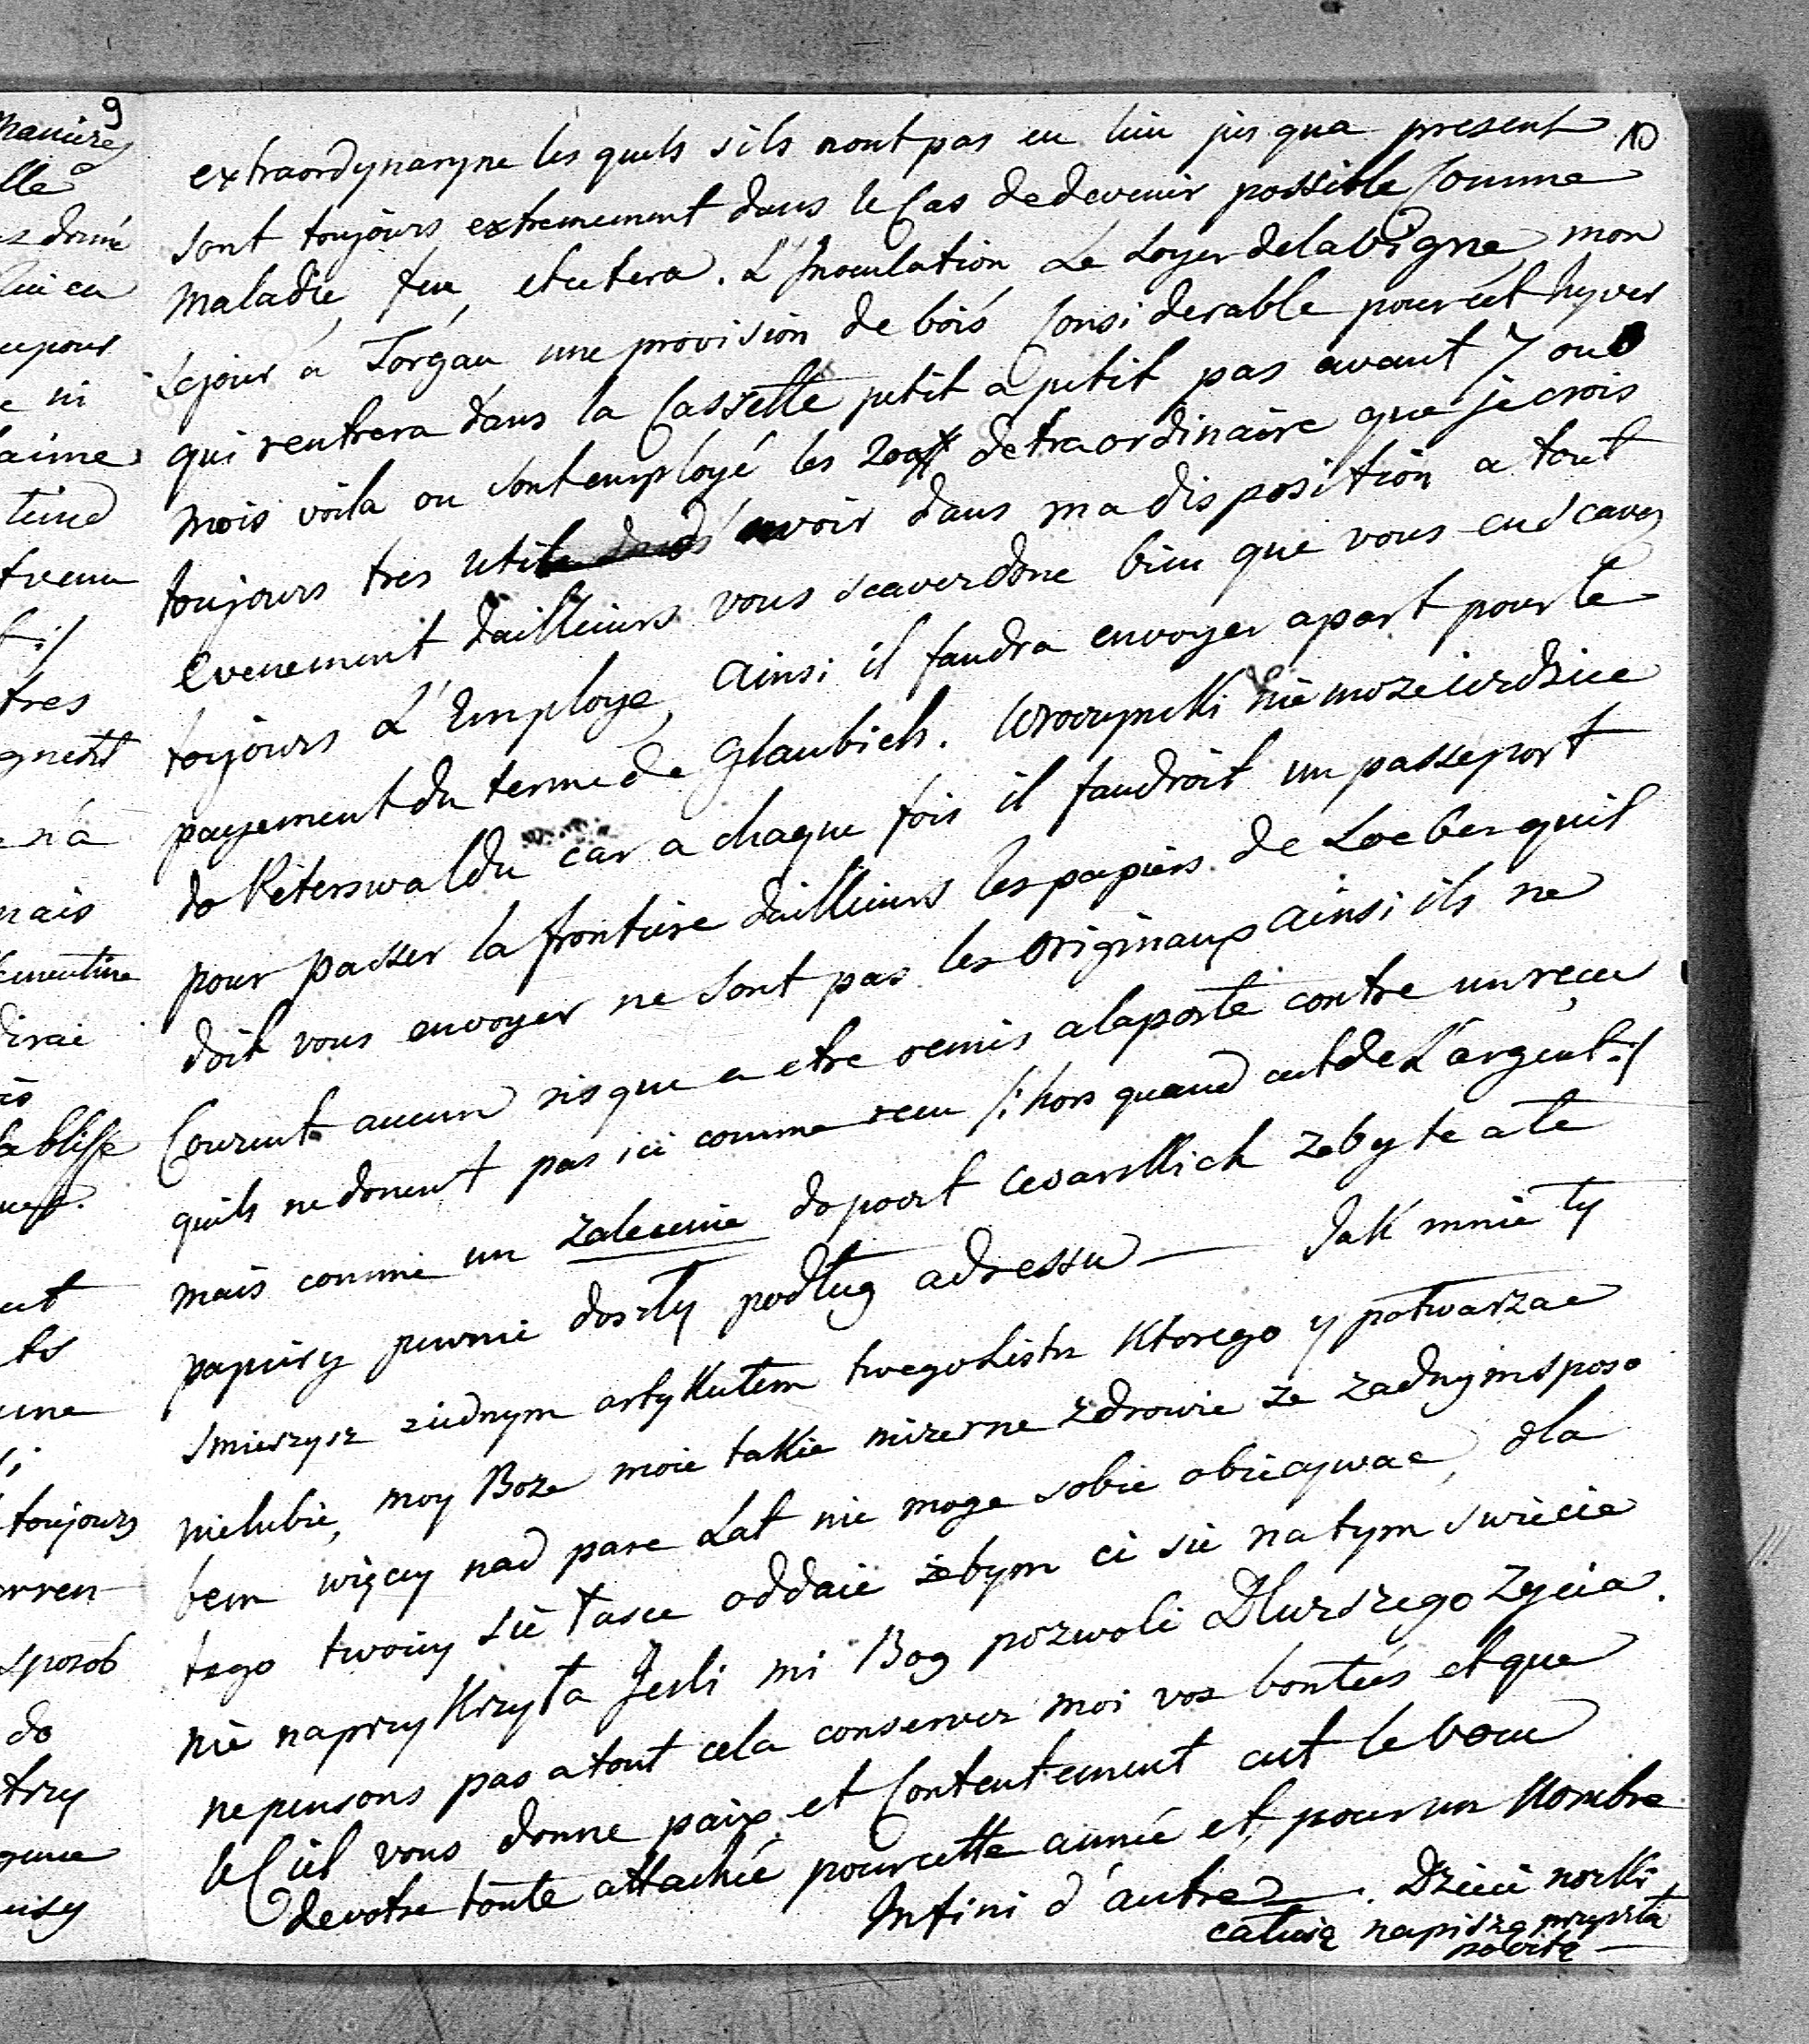 9
10
extraordynaryne les quels s'ils nont pas eu lieu jus qua present
sont toujours extremement dans le Cas de devenir possible Comme
maladie, feu, etcetera. L'Inoculation Le Loyer delavigne, mon
sejour a Torgau une provision de bois Considerable pour cet hyver
qui rentrera dans la Cassette petit a petit pas avant 7 ou 8
mois voila ou sont employé les 200# detraordinaire que je crois
toujours tres utile d'avoir dans ma disposition a tout
evenement dailleiurs vous scaver donc bien que vous en scaves
toyjours L'Employe, ainsi il faudra envoyer apart pour le
payement du terme de Glaubich. nie moze ierdzice
do Peterswaldu car a chaque fois il faudroit un passeport
pour passer la frontiere dailleiurs les papiers de Loeber quil
doit vous envoyer ne sont pas les originaux ainsi ils ne
Courent aucun risque a etre remis alaposte contre un reçeu
quils ne donent pas ici comme receu /: hors quand cest de L'argent :/
mais comme un zalecenie do poczt cesarskich zeby te ate
papiery pewnie doszły podług adressu — Jak mnie ty
smieszysz iednym artykułem twego Listu Ktorego y potwarzac
nielubie, moy Boze moie takie mizerne zdrowie ze zadnym sposo
bem więcy nad pare Lat nie moge sobie obiecywac, dla
tego twoiey sie łasce oddaie żebym ci sie na tym swiecie
nie naprzyKrzyła Jesli mi Bog pozwoli Dłurszego Zycia.
ne pensons pas a tout cela conserver moi vos bontées et que
le Ciel vous donne paix et Contentement cest le voeu
de votre toute attachée pour cette année et pour un Nombre
Infini d'autres. Dzieci norki
całuią napiszą przyszła
pocztą —